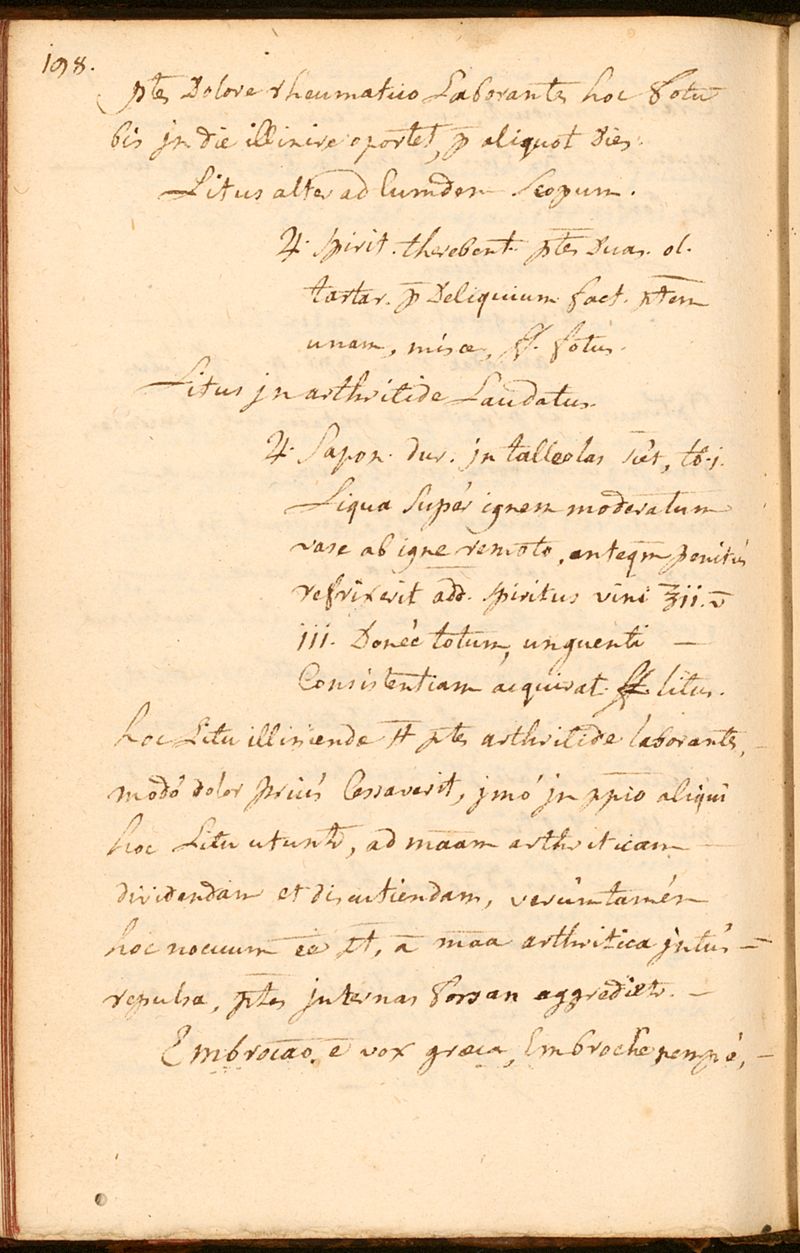 198.
ptes Dolore rheumatico Laborantes hoc fotu
bis jn die illinire oportet, p aliquot Dies.
Litus alter ad Eumdem Scopum.
♃. Spirit. therebent. ptes Duas. ol.
tartar. p Deliquium fact. ptem
unam, misce, ff. fotus.
Litus jn arthritide Laudatus.
♃. Sapon. dur. jn talleolas sect, ℔.j.
Liqua Super ignem moderatum
vase ab igne remoto, anteqm penitùs
refrixerit add. spiritus vini ℥ii. v
iii. Donéc totum, unguenti —
Consistentiam acquirat. ff. litus.
hoc Litu illiniendæ st ptes arthritide laborantes,
modó dolor priús Cessaverit, jmó jn ppio aliqui
hoc Litu utuntr, ad maam arthriticam
dividendam et discutiendam, verúmtamén
hoc nocuum ee pt, a maa arthritica jntús —
repulsa, ptes jnternas forsan aggredietr. —
Embrocao. e vox græca, Embroche nempè, —